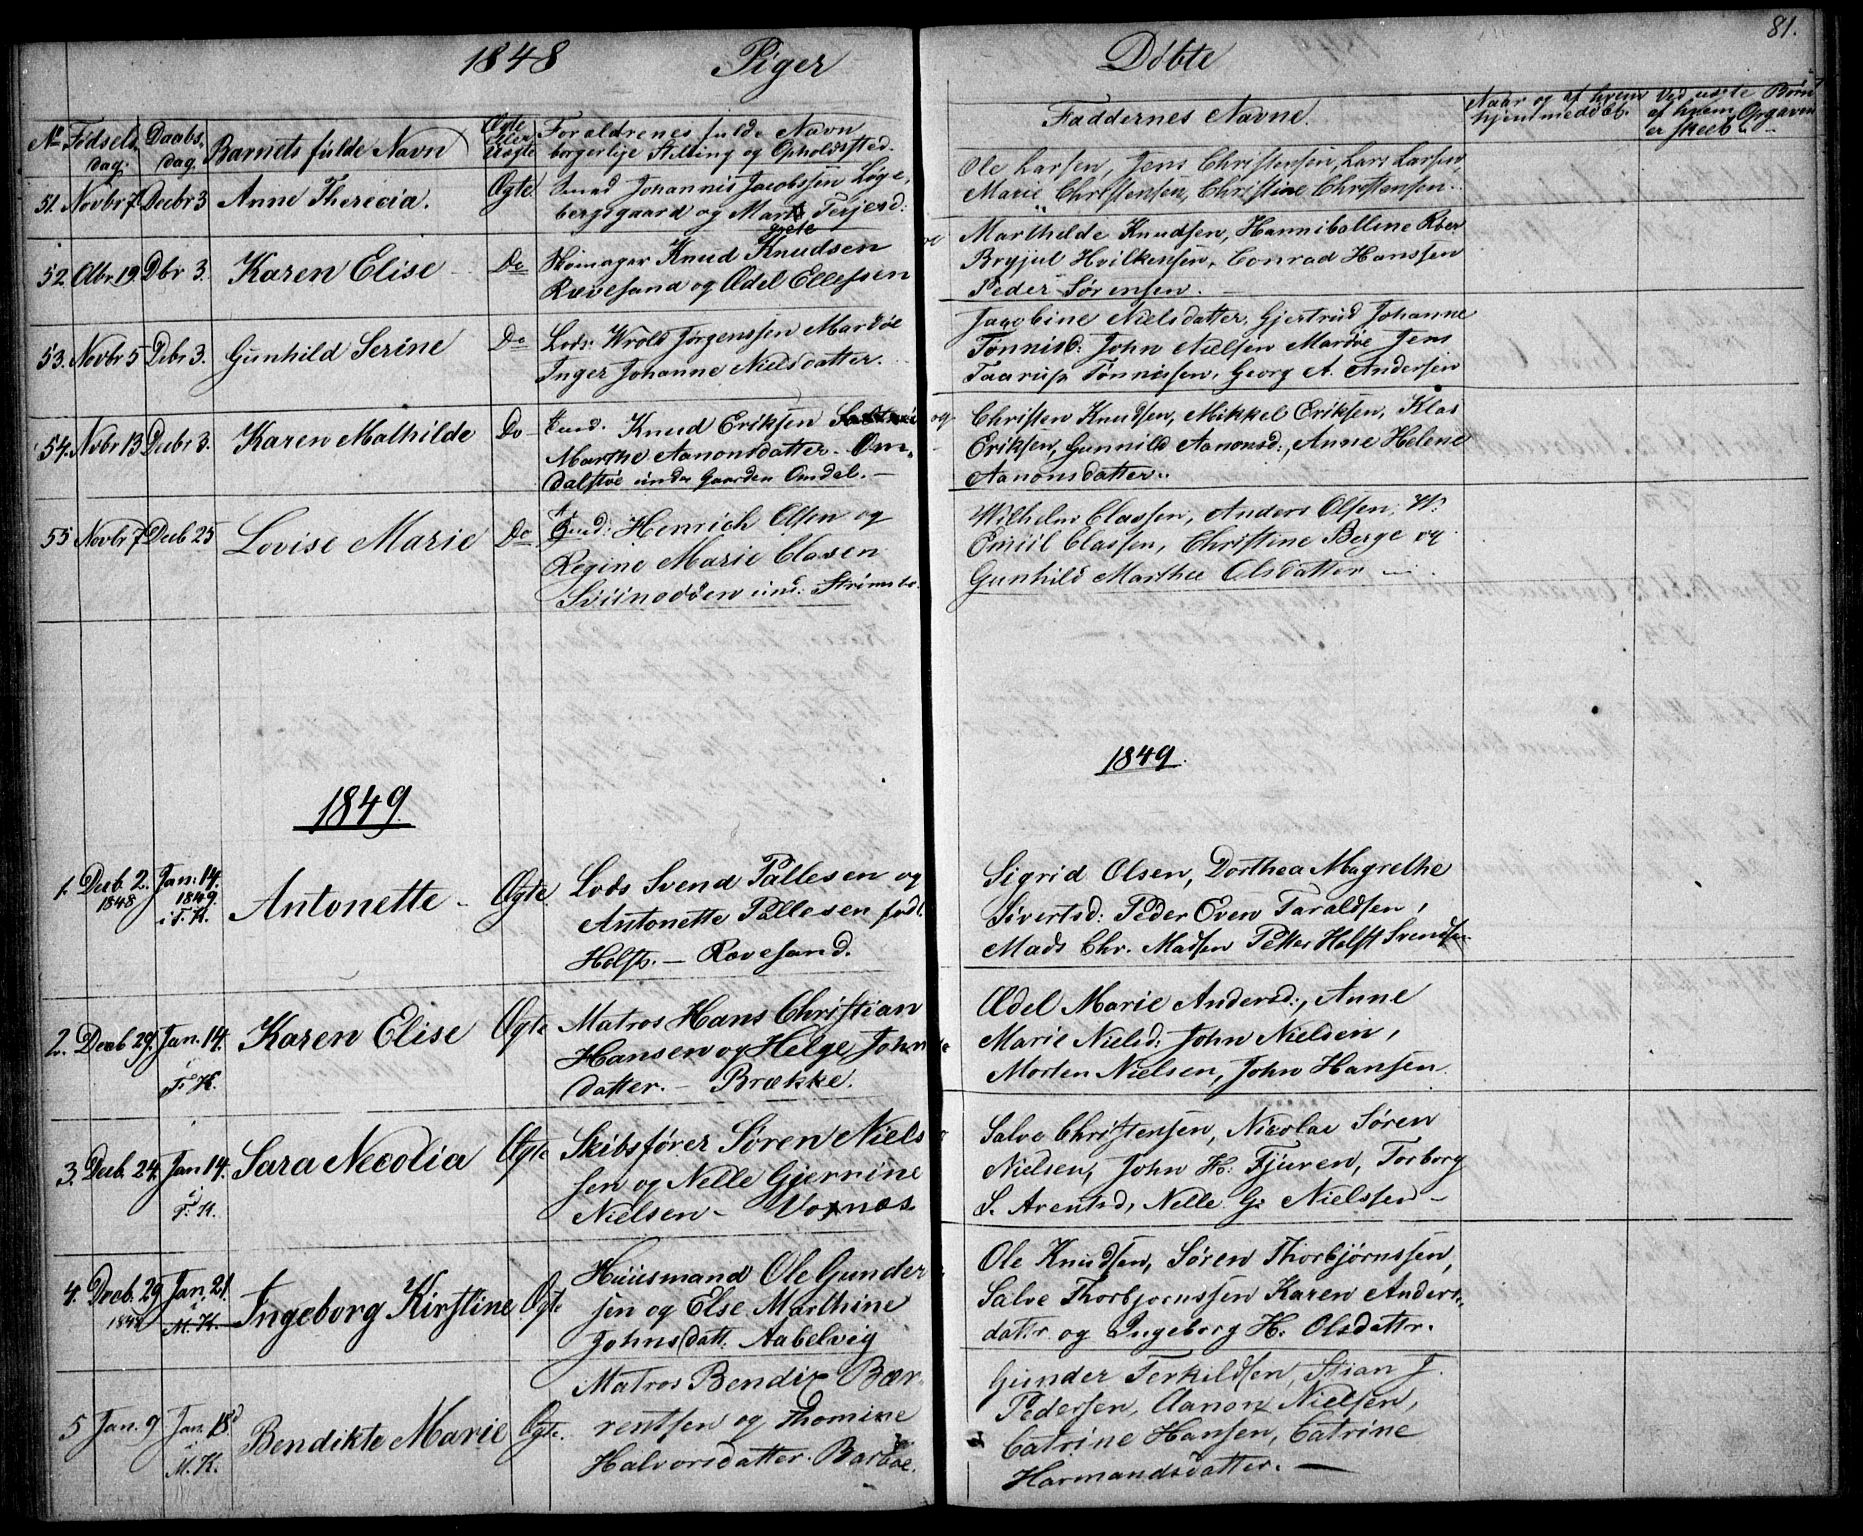 1848 Piger Døbte 81.
No Fødsels dag. Daabs dag. Barnets fulde Navn Ægte eller Uægte Forældrenes fulde Navn
borgerlige Stilling og Opholdssted.
Faddernes Navne.
Naar og af hvem hjemmedøbt. Ved uægte Børn
af hvem Opgaven
er skeet.
51. Novbr 7 Decbr 3 Anne Therecia. Ægte Smed Johannis Jacobssen Løge
bergsgaard og Marte Terjesd:
grete
Ole Larsen, Jens Christensen, Lars Larsen,
Marie Christensen, Christine Christensen.
52 Octbr 19. Dbr 3. Karen Elise Do Knud Knudsen
Rævesand og Ædel Ellefsen
Marthilde Knudsen, Hanniballine Roer
Bryjul Hvilkensen, Conrad Hanssen
Peder Sørensen.
53. Novbr 5 Debr 3. Gunhild Serine Do Lods: Wrold Jørgenssen Mardøe
Inger Johanne Nielsdatter.
Jacobine Nielsdatter, Gjertrud Johanne
Tønnisd: John Nielsen Mardøe Jens
Taarup Tønnissen, Georg A. Andersen
54. Novbr 13 Decbr 3. Karen Mathilde Do Knud Eriksen og
Marthe Aanonsdatter Om-
dalstøe under Gaarden Omdal.
Christen Knudsen, Mikkel Eriksen, Klas
Eriksen, Gunnild Aanonsd:, Anne Helene
Aanonsdatter.
55 Novbr 7 Decb 25 Lovise Marie Do Henrich Olsen og
Regine Marie Clasen
Sviinodden und: Strømsbo.
Wilhelm Classen, Anders Olsen, W.
Emiil Classen, Christine Berge og
Gunhild Marthea Olsdatter
1849
1849.
1. Decb. 2. 1848 Jan: 14. 1849. i T. K. Antonette Ægte Lods Svend Pallesen og
Antonette Pallesen født
Holst. — Rævesand.
Sigrid Olsen, Dorthea Magrethe
Sivertsd: Peder Even Taraldsen,
Mads Chr. Madsen Petter Holst Svendsen
2. Decb 29. Jan. 14. i T. K. Karen Elise Ægte Matros Hans Christian
Hansen og Helge Johns
datter. — Brække.
Ædel Marie Andersd:, Anne
Marie Nielsd: John Nielsen,
Morten Nielsen, John Hansen.
3. Decb. 24. Jan 14. i T. K. Sara Necolia Ægte Skibsfører Søren Niels
sen og Nelle Gjerrine
Nielsen — Voxnæs.
Salve Christensen, Nicolai Søren
Nielsen, John H. Fjuren, Torborg
S. Arentsd, Nelle G. Nielssen —
4. Decb. 29 1848 Jan. 21. i M. K. Ingeborg Kirstine Ægte Huusmand Ole Gunder
sen og Else Marthine
Johnsdatt. Aabelvig
Ole Knudsen, Søren Thorbjørnssen,
Salve Thorbjørnssen Karen Anders-
datr og Ingeborg H. Olsdattr.
5 Jan. 9 Jan. 18 i M. K. Bendikte Marie Ægte. Matros Bendix Bær-
rentsen og Thomine
Halvorsdatter. Barboe.
Gunder Terkildsen, Stian J.
Pedersen, Aanon Nielsen,
Catrine Hansen, Catrine
Harmandsdatter. —